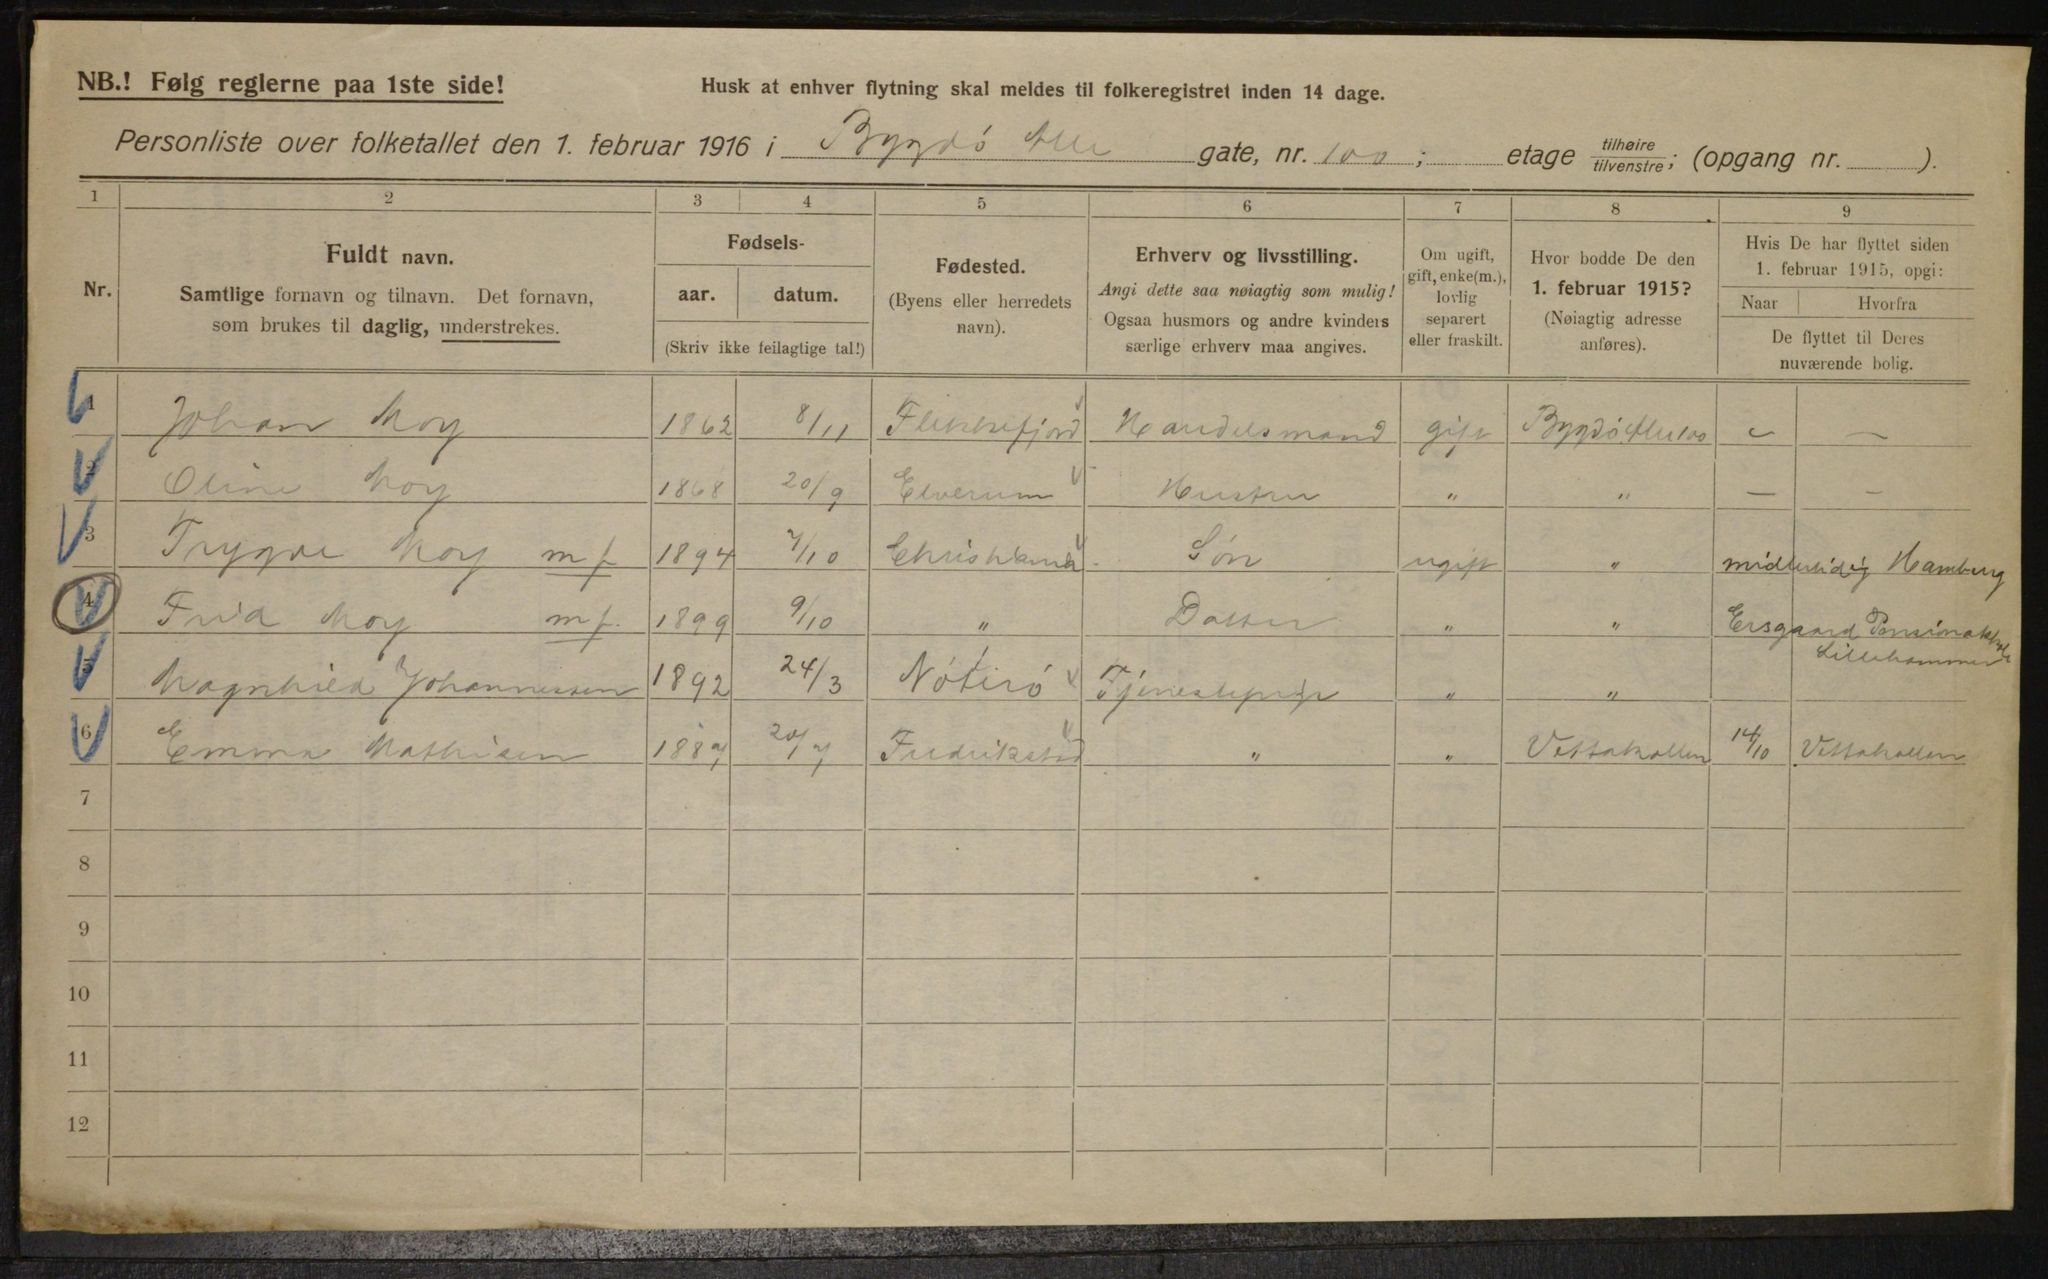 NB.! Følg reglerne paa 1ste side!
Husk at enhver flytning skal meldes til folkeregistret inden 14 dage.
Personliste over folketallet den 1. februar 1916 i Bygdö Alle gate, nr. 100; etage tilhøire tilvenstre; (opgang nr. ).
1 2 3 4 5 6 7 8 9
Nr.
Fuldt navn.
Samtlige fornavn og tilnavn. Det fornavn,
som brukes til daglig, understrekes.
Fødsels-
aar. datum.
(Skriv ikke feilagtige tal!)
Fødested.
(Byens eller herredets
navn).
Erhverv og livsstilling.
Angi dette saa nøiagtig som mulig!
Ogsaa husmors og andre kvinders
særlige erhverv maa angives.
Om ugift,
gift, enke(m.),
lovlig
separert
eller fraskilt.
Hvor bodde De den
1. februar 1915?
(Nøiagtig adresse
anføres).
Hvis De har flyttet siden
1. februar 1915, opgi:
Naar Hvorfra
De flyttet til Deres
nuværende bolig.
1 Johan Moy 1862 8/11 Flekkefjord Handelsmand gift Bygdö Alle 100 – –
2 Oline Moy 1868 20/9 Elverum Hustru " " – –
3 Trygve Moy m f. 1894 7/10 Christiania Sön ugift " midlertidig Hamburg
4 Frid Moy m f. 1899 9/10 " Datter " " Ersgaard
Lillehammer
5 Magnhild Johannessen 1892 24/3 Nöterö Tjenestepige " "
6 Emma Mathisen 1887 20/7 Fredrikstad " " Vettakollen 14/10 Vettakollen
7
8
9
10
11
12